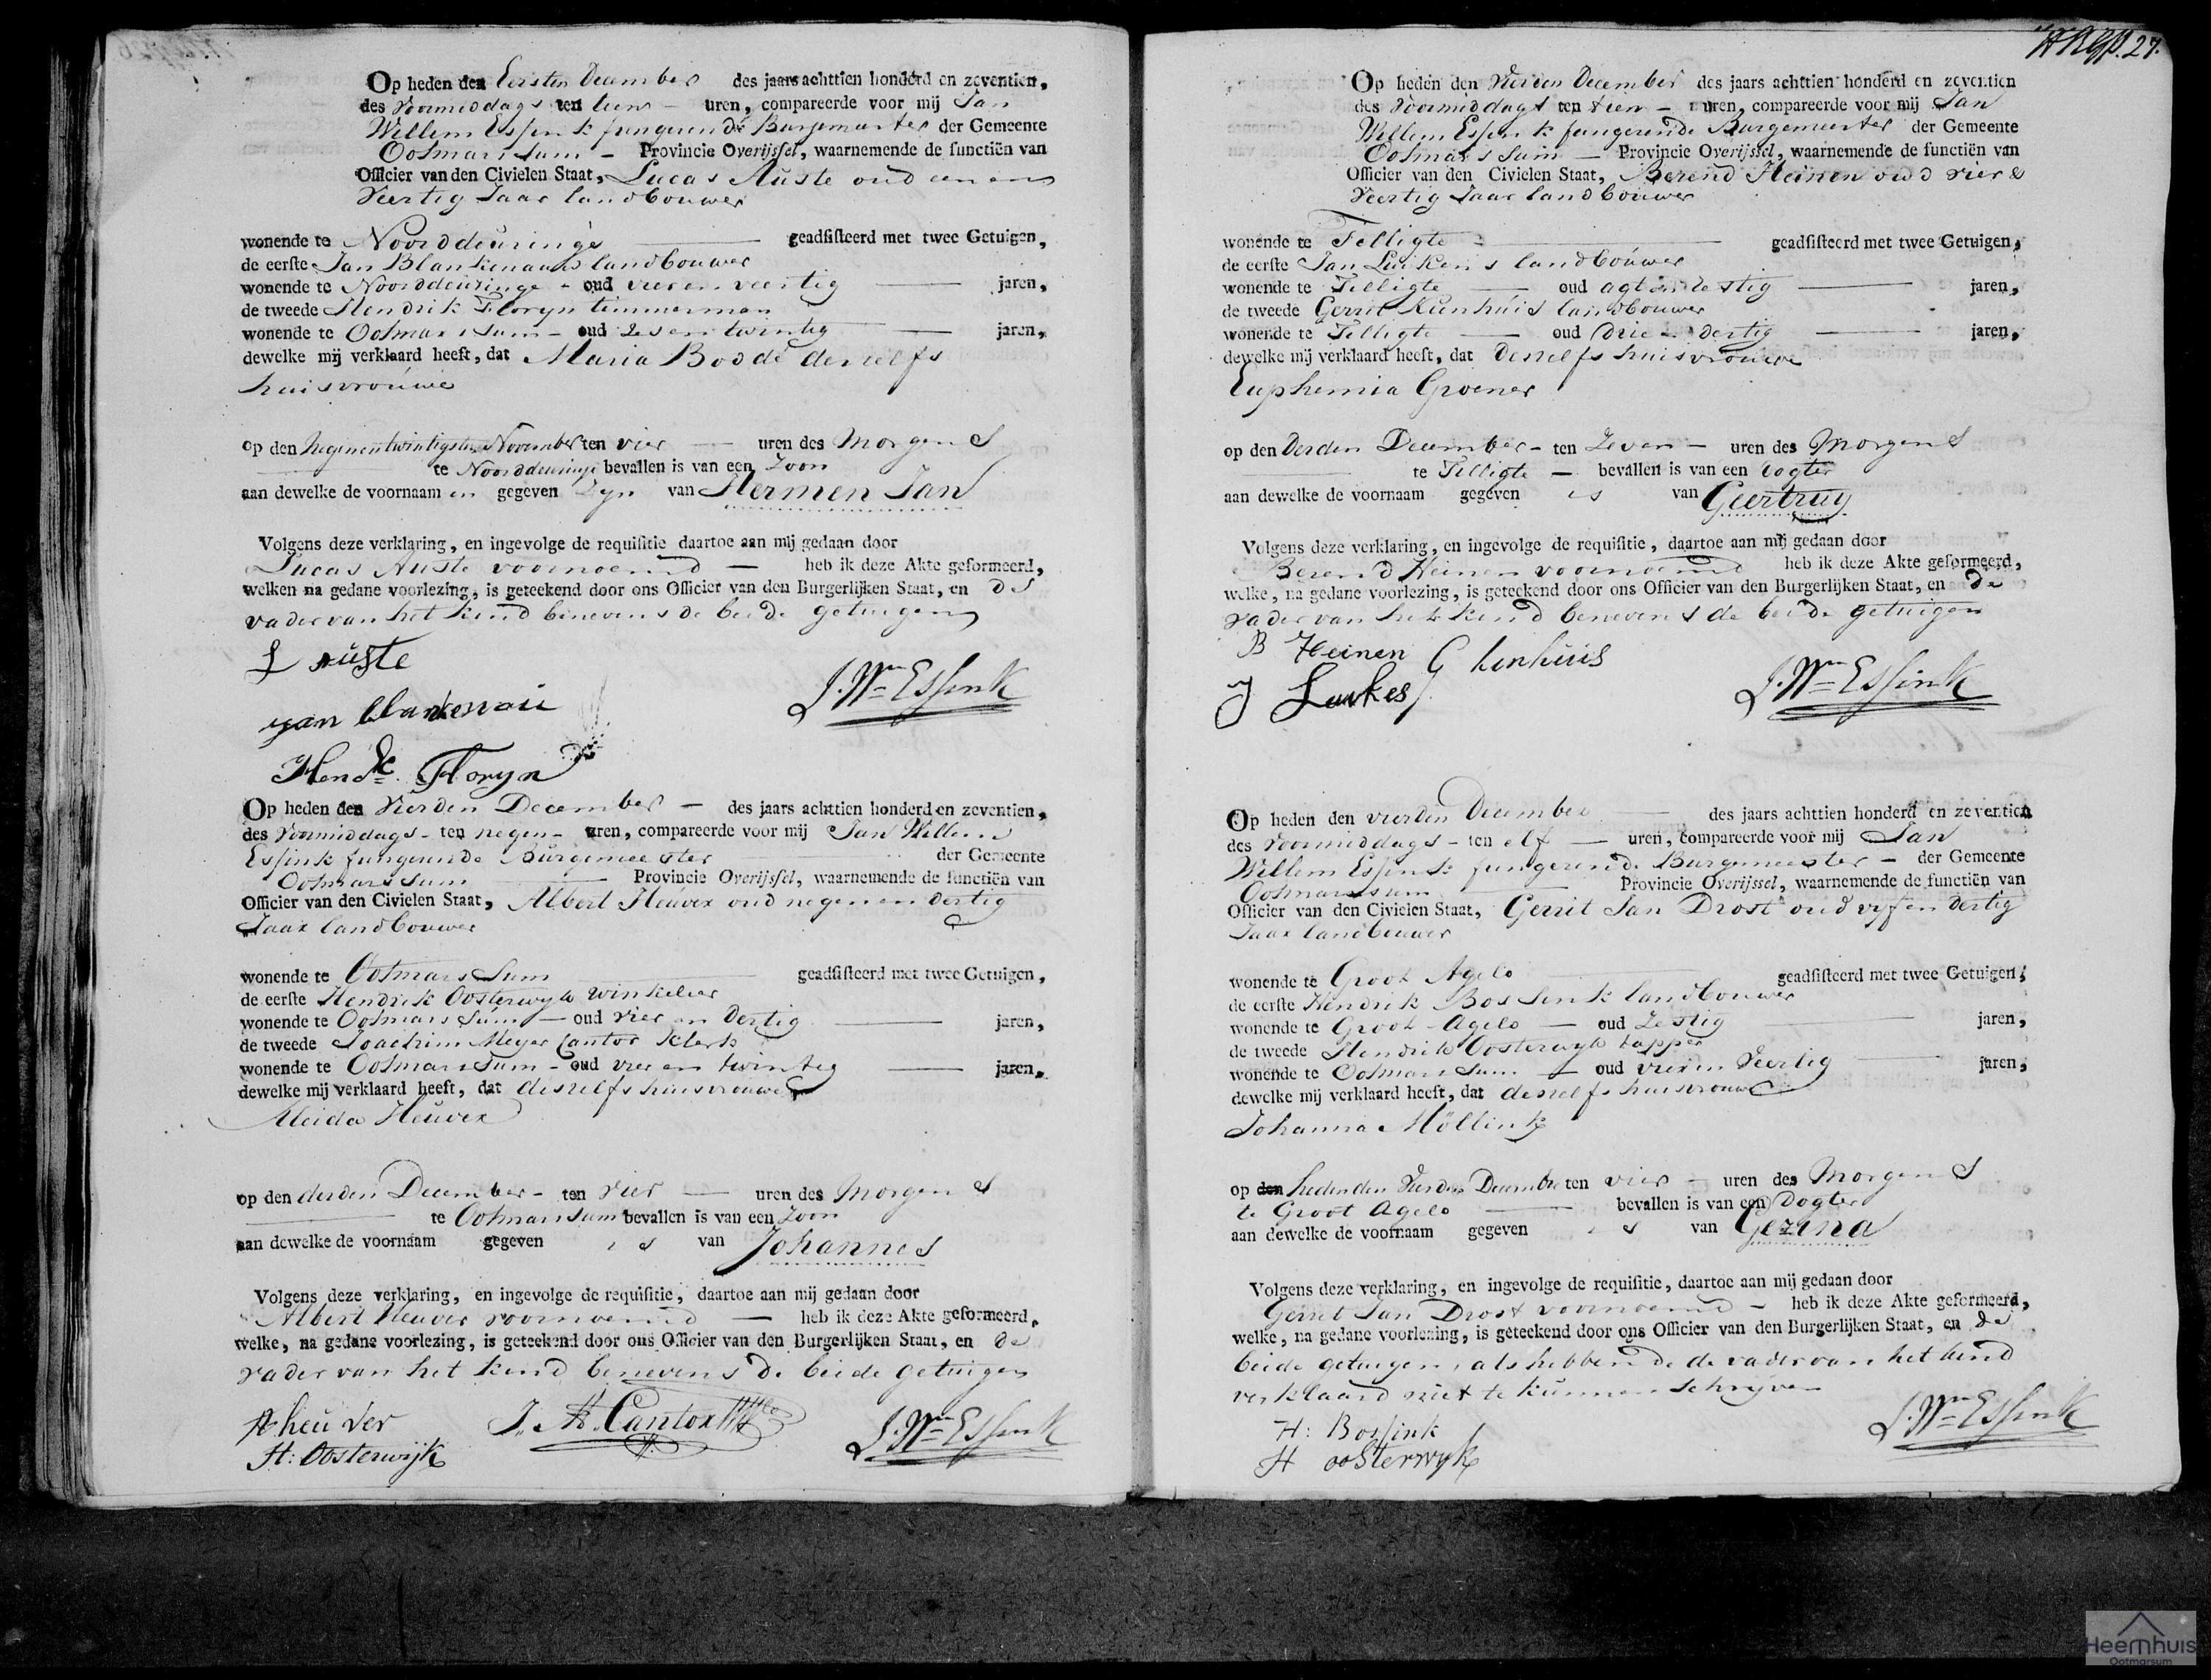 Op heden den Eersten December des jaars achttien honderd en zeventien,
des Voormiddags ten tien - uren, compareerde voor mij Jan
Willem Essink fungerende Burgemeester der Gemeente
Ootmarssum - Provincie Overijssel, waarnemende de functiën van
Officier van den Civielen Staat, Lucas Auste oud een en
Veertig Jaar landbouwer
wonende te Noorddeuringe geadsisteerd met twee Getuigen,
de eerste Jan Blankenauw landbouwer
wonende te Noorddeuringe - oud vier en veertig jaren,
de tweede Hendrik Floryn timmerman
wonende te Ootmarssum - oud zes en twintig jaren,
dewelke mij verklaard heeft, dat Maria Bodde deszelfs
huisvrouwe
op den Negenentwintigsten November ten vier uren des Morgens
te Noorddeuringe bevallen is van een Zoon
aan dewelke de voornaam en gegeven Zyn van Hermen Jan
Volgens deze verklaring, en ingevolge de requisitie daartoe aan mij gedaan door
Lucas Auste voornoemd - heb ik deze Akte geformeerd,
welken na gedane voorlezing, is geteekend door ons Officier van den Burgerlijken Staat, en de
vader van het kind benevens de beide getuigen
L auste
J. Wm Essink
jan blankenau
Hendk Floryn
Op heden den Vierden December - des jaars achttien honderd en zeventien,
des Voormiddags - ten negen - uren, compareerde voor mij Jan Willem
Essink fungerende Burgemeester der Gemeente
Ootmarssum Provincie Overijssel, waarnemende de functiën van
Officier van den Civielen Staat, Albert Heuver oud negen en dertig
Jaar landbouwer
wonende te Ootmarssum geadsisteerd met twee Getuigen,
de eerste Hendrik Oosterwyk winkelier
wonende te Ootmarssum - oud vier en dertig jaren,
de tweede Joachim Meyer Cantor Klerk
wonende te Ootmarssum - oud vier en twintig jaren,
dewelke mij verklaard heeft, dat deszelfs huisvrouwe
Aleida Heuver
op den derden December - ten vier uren des Morgens
te Ootmarssum bevallen is van een Zoon
aan dewelke de voornaam gegeven is van Johannes
Volgens deze verklaring, en ingevolge de requisitie, daartoe aan mij gedaan door
Albert Heuver voornoemd - heb ik deze Akte geformeerd,
welke, na gedane voorlezing, is geteekend door ons Officier van den Burgerlijken Staat, en de
vader van het kind benevens de beide getuigen
A heuver J. M. Cantor
H: Oosterwijk J. Wm Essink
27.
Op heden den Vierden December des jaars achttien honderd en zeventien
des Voormiddags ten tien - uren, compareerde voor mij Jan
Willem Essink fungerende Burgemeester der Gemeente
Ootmarssum - Provincie Overijssel, waarnemende de functiën van
Officier van den Civielen Staat, Berend Heinen oud vier &
Veertig Jaar landbouwer
wonende te Tilligte geadsisteerd met twee Getuigen,
de eerste Jan Luikens landbouwer
wonende te Tilligte oud agt en zestig jaren,
de tweede Gerrit Kunhuis landbouwer
wonende te Tilligte oud drie en dertig jaren,
dewelke mij verklaard heeft, dat deszelfs huisvrouwe
Euphemia Groener
op den Derden December - ten Zeven - uren des Morgens
te Tilligte - bevallen is van een Dogter
aan dewelke de voornaam gegeven is van Geertruy
Volgens deze verklaring, en ingevolge de requisitie, daartoe aan mij gedaan door
Berend Heinen voornoemd heb ik deze Akte geformeerd,
welke, na gedane voorlezing, is geteekend door ons Officier van den Burgerlijken Staat, en de
vader van het kind benevens de beide getuigen
B Heinen G kunhuis
J Luikes J. Wm Essink
Op heden den vierden December des jaars achttien honderd en zeventien
des Voormiddags - ten elf - uren, compareerde voor mij Jan
Willem Essink fungerende Burgemeester - der Gemeente
Ootmarssum Provincie Overijssel, waarnemende de functiën van
Officier van den Civielen Staat, Gerrit Jan Drost oud vyf en dertig
Jaar landbouwer
wonende te Groot Agelo geadsisteerd met twee Getuigen,
de eerste Hendrik Bossink landbouwer
wonende te Groot Agelo - oud Zestig jaren,
de tweede Hendrik Oosterwyk tapper
wonende te Ootmarssum - oud vier en Veertig jaren,
dewelke mij verklaard heeft, dat deszelfs huisvrouwe
Johanna Möllink
op den heden den Vierden December ten vier - uren des Morgens
te Groot Agelo bevallen is van een Dogter
aan dewelke de voornaam gegeven is van Gezina
Volgens deze verklaring, en ingevolge de requisitie, daartoe aan mij gedaan door
Gerrit Jan Drost voornoemd - heb ik deze Akte geformeerd,
welke, na gedane voorlezing, is geteekend door ons Officier van den Burgerlijken Staat, en de
beide getuigen, als hebbende de vader van het kind
verklaard niet te kunnen schryven
H: Bossink J. Wm Essink
H oosterwyk
Heemhuis
Ootmarsum